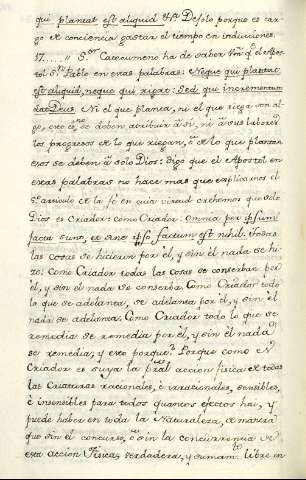 qui plantat est aliquid &ra. Dejolo porque es car-
go de conciencia gastar el tiempo en inducciones.
17.... // S.or Catecumeno ha de saber Vm q.e el Apos-
tol S.n Pablo en estas palabras: Neque qui plantat
est aliquid, neque qui rigat: Sed qui incrementum
dat Deus. Ni el que planta, ni el que riega son al-
go, esto es no se deben atribuir à si, ni à sus labores
los progresos de lo que riegan, ò de lo que plantan
esos se deben à solo Dios: digo que el Apostol en
estas palabras no hace mas que explicarnos el
articulo de la fé en cuia virtud crehemos que solo
Dios es Criador: como Criador. Omnia per ipsum
facta sunt, et sine ipso factum est nihil. Todas
las cosas se hicieron por él, y sin él nada se hi-
zo: Como Criador todas las cosas se conserban por
él, y sin él nada se conserba. Como Criador todo
lo que se adelanta, se adelanta por él, y sin él
nada se adelanta. Como Criador todo lo que se
remedia se remedia por él, y sin él nada
se remedia; y esto porque? Porque como es
Criador es suya la pral accion fisica de todas
las criaturas racionales, è irracionales, sensibles,
è insensibles para todos quantos efectos hai, y
puede haber en toda la Naturaleza, de manera
que sin el concurso, ò sin la concurrencia de
esta accion Fisica, verdadera, y sumam.te libre en